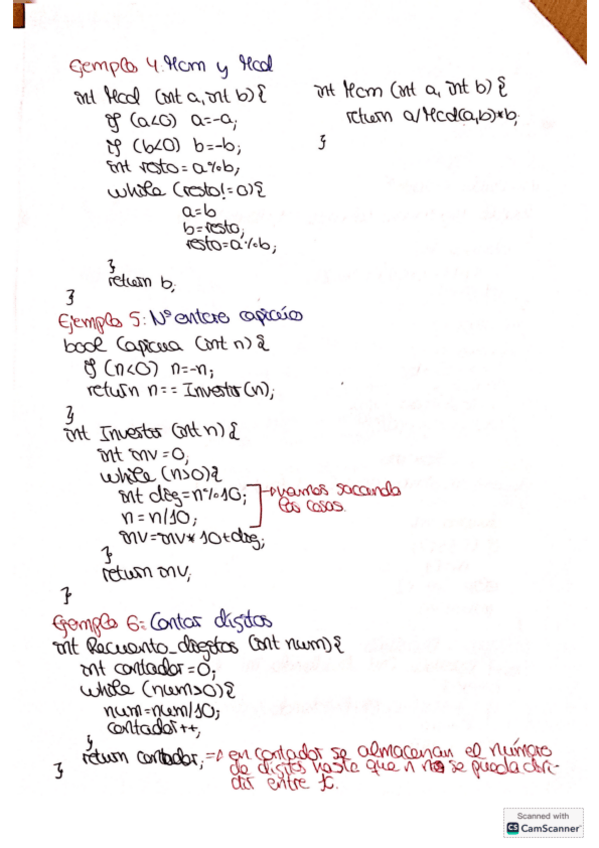 Ejemplo 4. Mcm y Mcd
int Mcd (int a, int b) {
if (a<0) a=-a;
if (b<0) b=-b;
int resto=a%b;
while (resto!=0){
a=b
b=resto;
resto=a%b;
}
return b;
}
int Mcm (int a, int b) {
return a/Mcd(a,b)*b;
}
Ejemplo 5: Nº entero capicúo
bool Capicua (int n) {
if (n<0) n=-n;
return n== Invertir(n);
}
int Invertir (int n) {
int inv=0;
while (n>0){
int dig=n%10;
n=n/10;
inv=inv*10+dig;
}
return inv;
}
→vamos sacando
las cosas.
Ejemplo 6: Contar dígitos
int Recuento_digitos (int num){
int contador=0;
while (num>0){
num=num/10;
contador++;
}
return contador; => en contador se almacenan el número
de dígitos hasta que n no se pueda divi-
dir entre
}
Scanned with
CS CamScanner